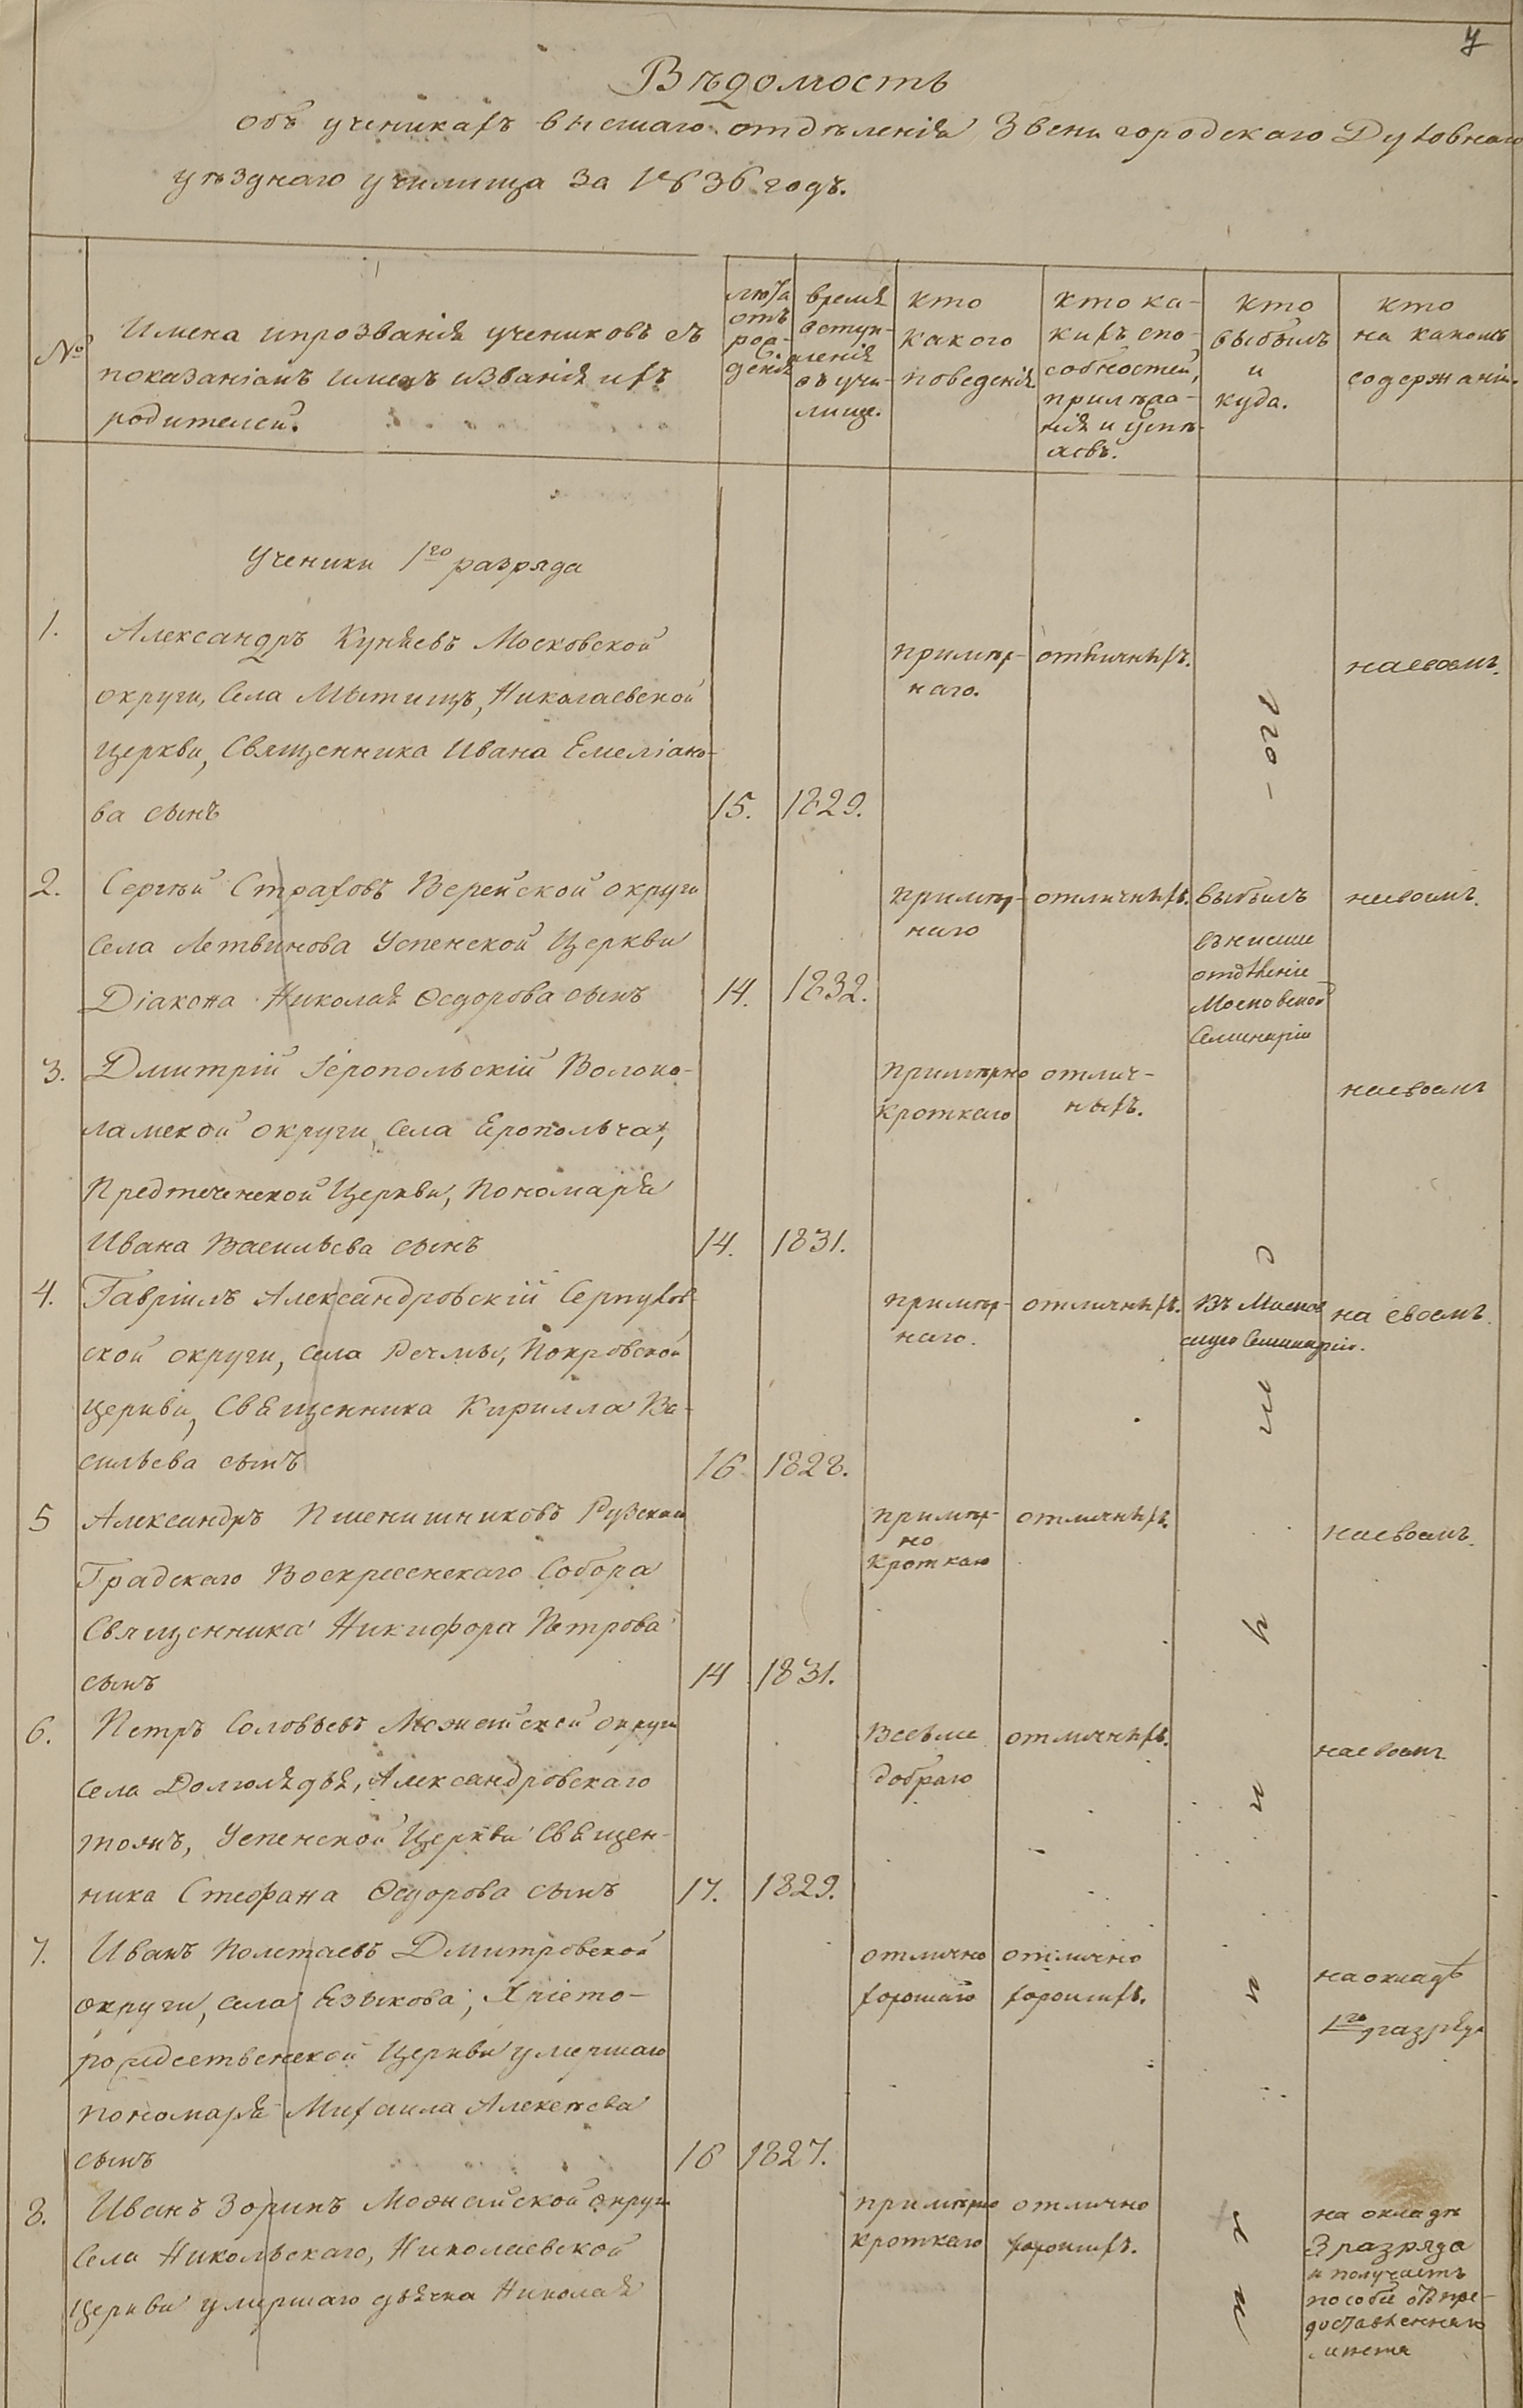 7
Вѣдомость
объ ученикахъ высшаго отдѣленія Звенигородскаго Духовнаго
уѣзднаго училища за 1836 годъ.
№
Имена и прозванія учениковъ съ
показаніемъ именъ и званія ихъ
родителей.
лѣта
отъ
рож-
денія
время
вступ-
ленія
въ учи-
лище.
кто
какого
поведенія
кто ка-
кихъ спо-
собностей,
прилѣжа-
нія и успѣ-
ховъ.
кто
выбылъ
и
куда.
кто
на какомъ
содержаніи.
Ученики 1го разряда
1.
Александръ Куняевъ Московской
округи, Села Мытищъ, Николаевской
церкви, Священника Ивана Емеліано-
ва сынъ
15.
1829.
примѣр-
наго.
отличныхъ.
на своемъ.
2.
Сергѣй Страховъ Верейской округи
Села Летвинова Успенской Церкви
Діакона Николая Ѳедорова сынъ
14.
1832.
примѣр-
наго
отличныхъ.
выбылъ
въ низшее
отдѣленіе
Московской
Семинаріи
на своемъ.
3.
Дмитрій Іеропольскій Волоко-
ламской округи, Села Ерополъча,
Предтеченской Церкви, Пономаря
Ивана Васильева сынъ
14.
1831.
примѣрно
кроткаго
отлич-
ныхъ.
на своемъ
4.
Гавріилъ Александровскій Серпухов-
ской округи, Села Речмы, Покровской
церкви, Священника Кирилла Ва-
сильева сынъ
16
1828.
примѣр-
наго.
отличныхъ.
Въ Москов
скую Семинарію.
на своемъ.
5
Александръ Пшенишниковъ Рузскаго
Градскаго Воскресенскаго Собора
Священника Никифора Петрова
сынъ
14
1831.
примѣр-
но
кроткаго
отличныхъ.
на своемъ.
6.
Петръ Соловьевъ Можайской округи
Села Долголядья, Александровскаго
тожъ, Успенской Церкви Священ-
ника Стефана Ѳедорова сынъ
17.
1829.
Весьма
добраго
отличныхъ.
на своемъ
7.
Иванъ Полетаевъ Дмитровской
округи, села Языкова, Христо-
рождественской Церкви умершаго
пономаря Михаила Алексѣева
сынъ
16
1827.
отлично
хорошаго
отлично
хорошихъ.
на окладѣ
1го разряда
8.
Иванъ Зоринъ Можайской округи
Села Никольскаго, Николаевской
Церкви умершаго дьячка Николая
примѣрно
кроткаго
отлично
хорошихъ.
на окладѣ
3 разряда
и получаетъ
пособіе отъ пре-
доставленнаго
мѣста